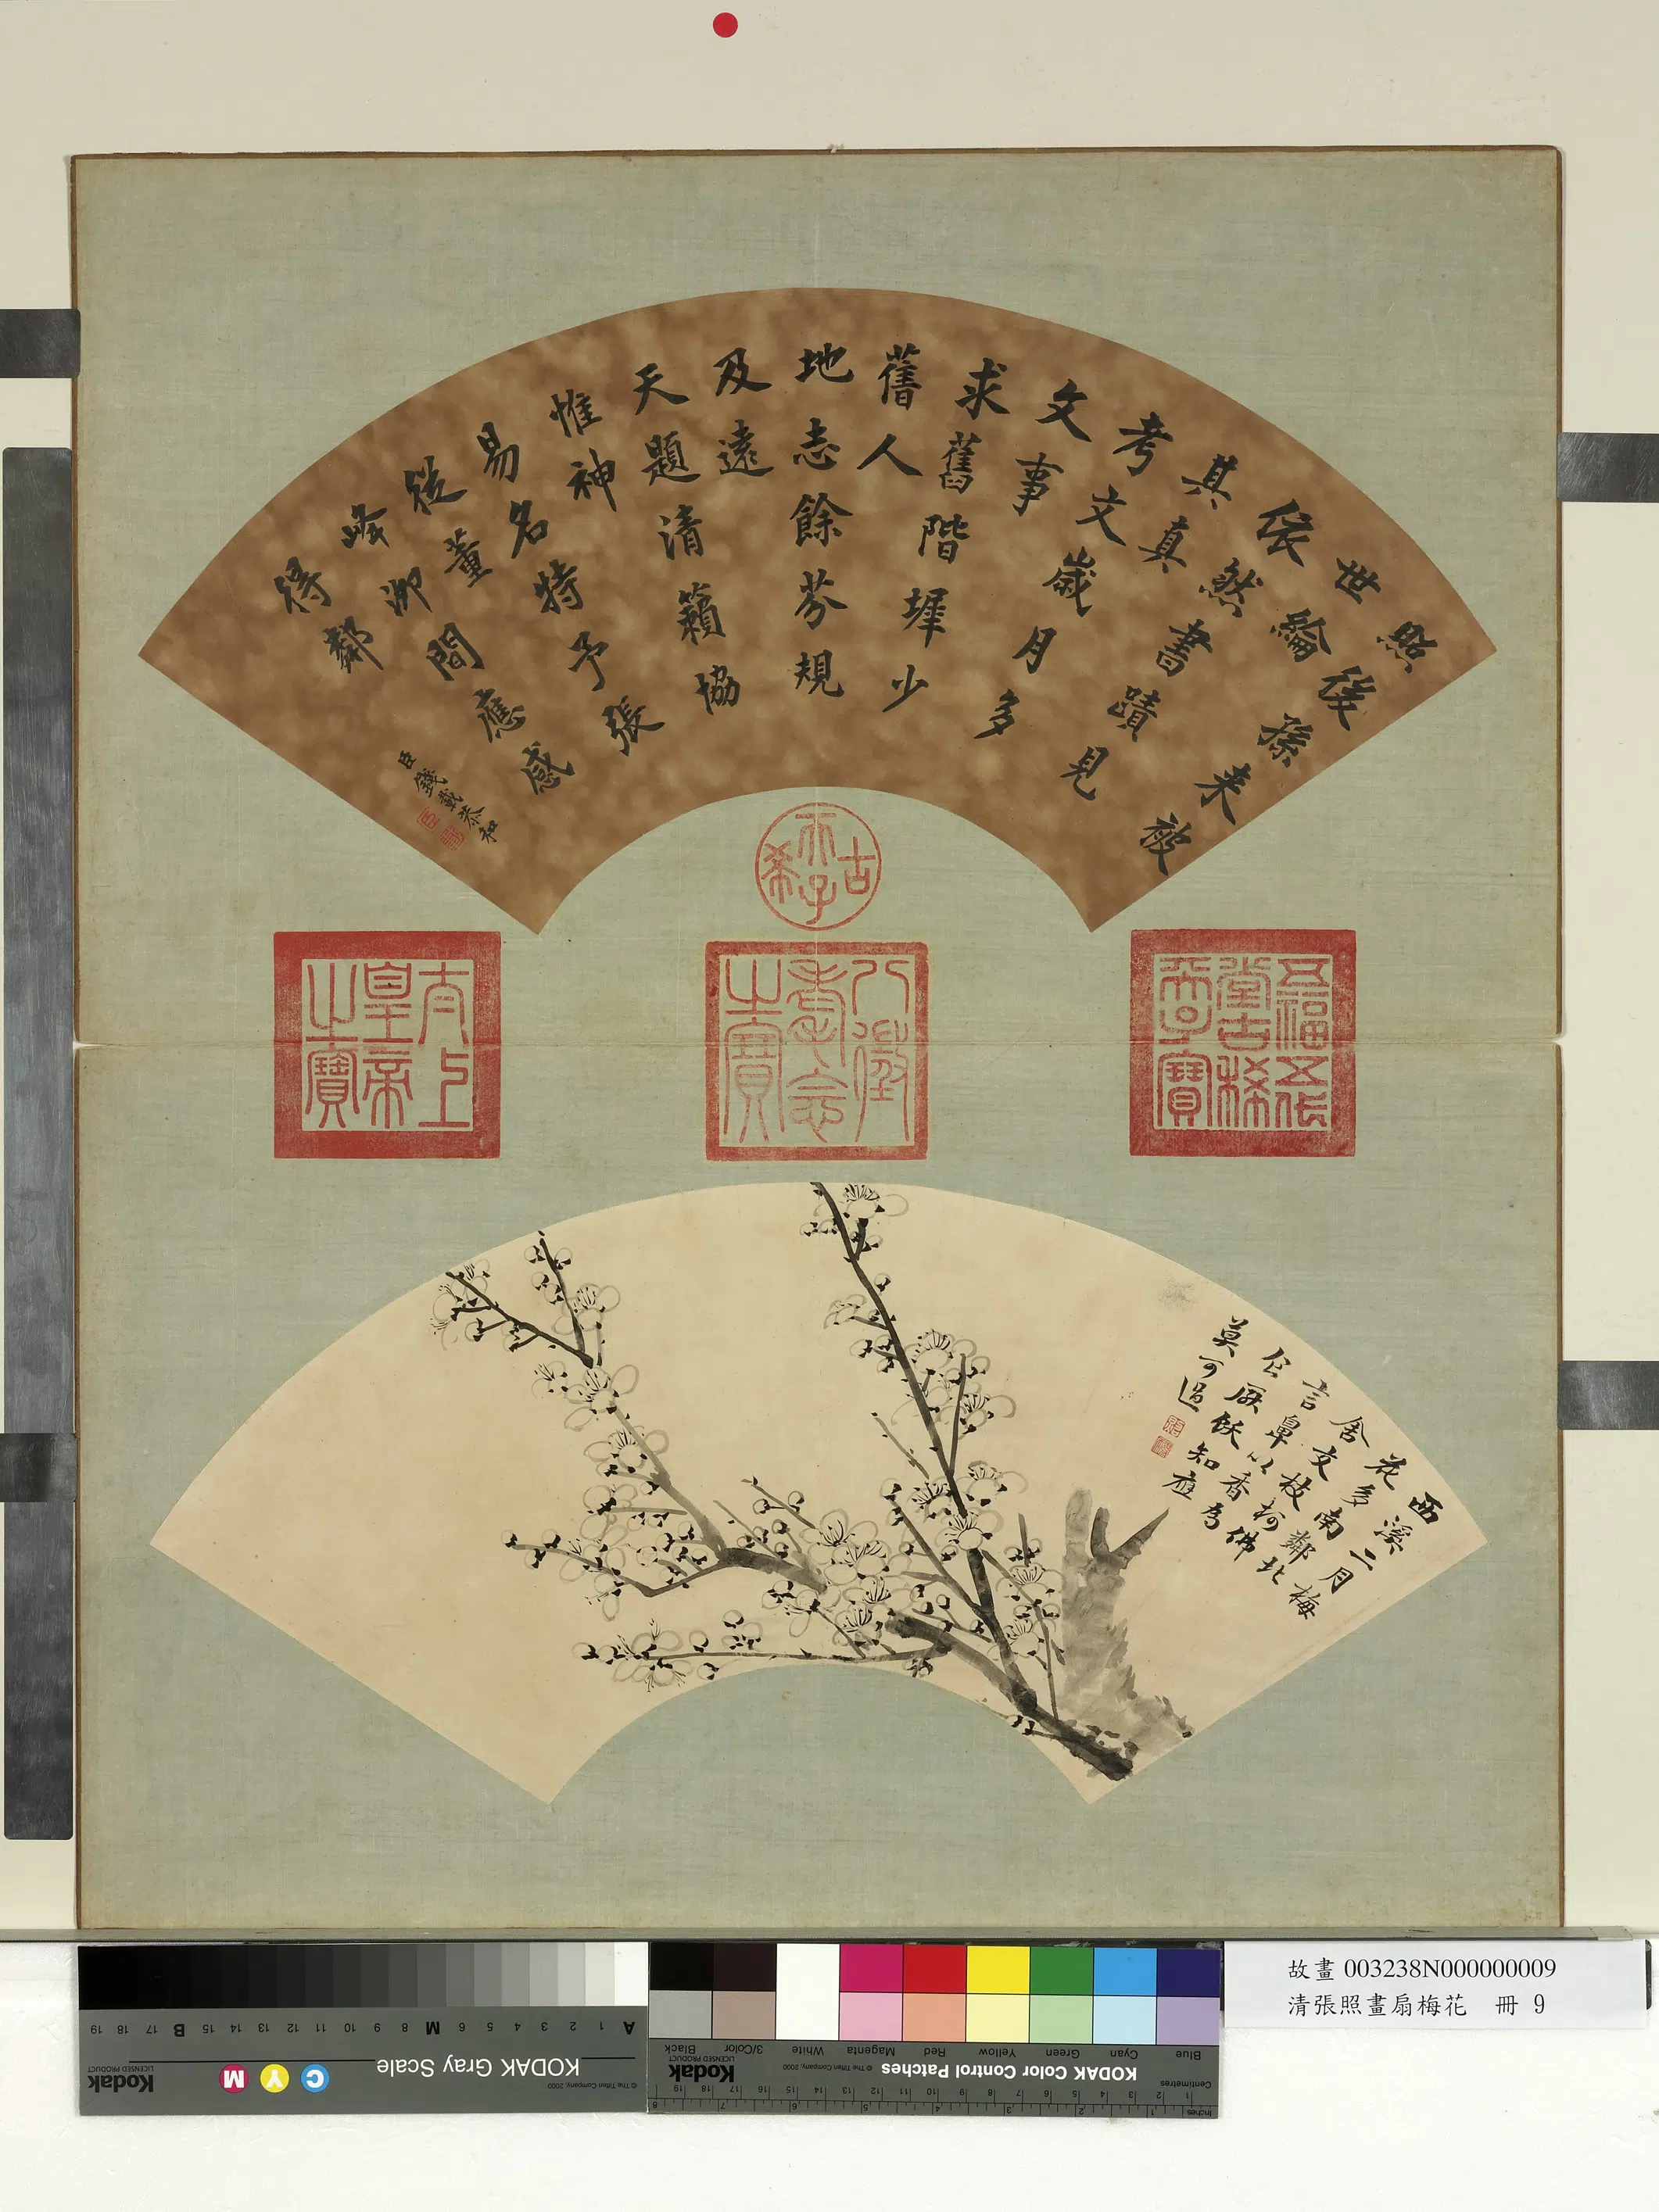 照後孫來被
世綸
依然書蹟見
其真
考文歲月多
文事
求舊階墀少
舊人
地志餘芬規
及遠
天題清籟協
惟神
易名特予張
從董
峰泖間應感
得鄰
臣錢載恭和
古希天子
五福五代堂古稀天子寶
八徵耄念之寶
太上皇帝之寶
西溪二月梅
花多南鄰北
舍交枝柯佛
言鼻以香為
食厥飫知應
莫可過
故畫 003238N000000009
清張照畫扇梅花 冊 9
KODAK Gray Scale
Kodak
LICENSED PRODUCT
© The Tiffen Company, 2000
C Y M
A 1 2 3 4 5 6 M 8 9 10 11 12 13 14 15 B 17 18 19
KODAK Color Control Patches
© The Tiffen Company, 2000
Kodak
LICENSED PRODUCT
Blue Cyan Green Yellow Red Magenta White 3/Color Black
Centimetres
Inches